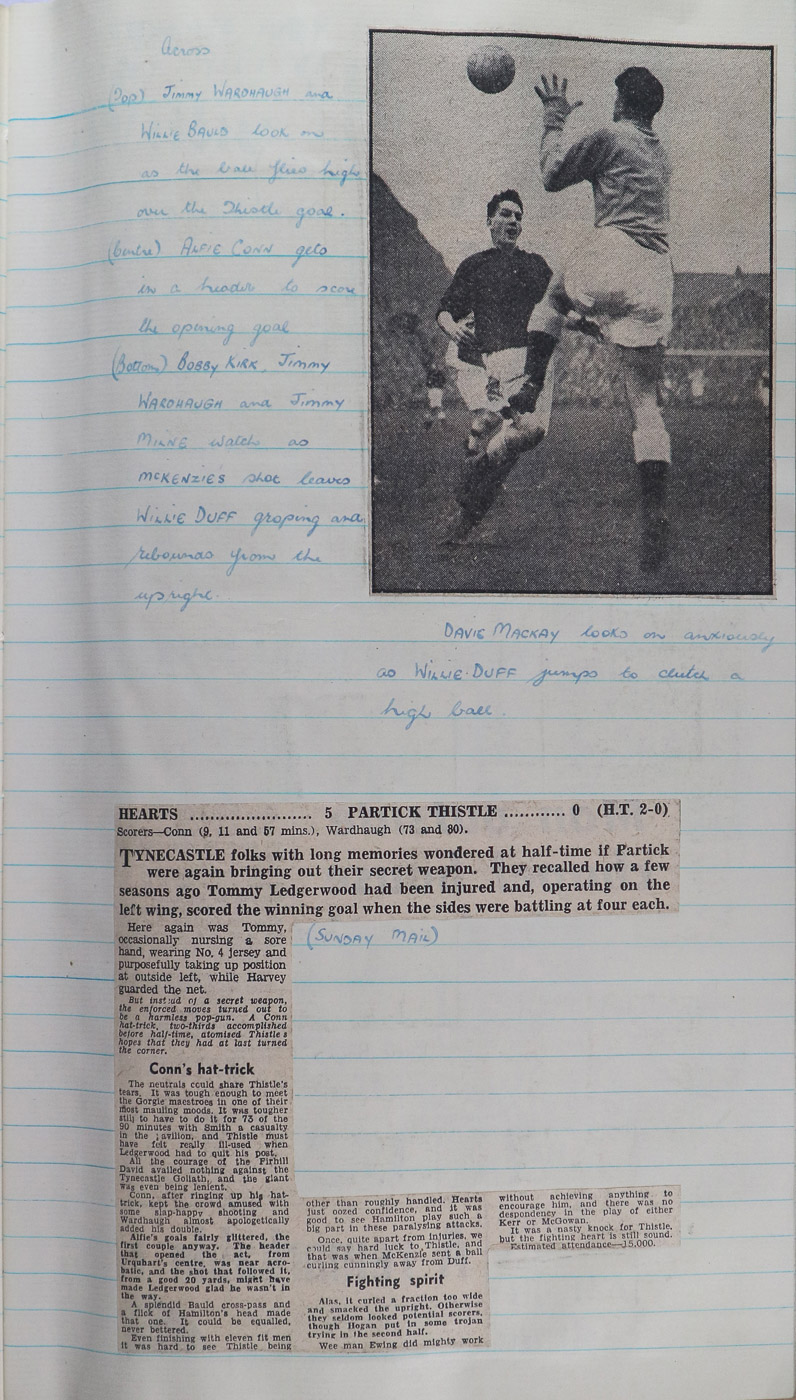 Across
(Top) JIMMY WARDHAUGH and
WILLIE BAULD look on
as the ball flies high
over the Thistle goal.
(Centre) ALFIE CONN gets
in a header to score
the opening goal
(Bottom) BOBBY KIRK, JIMMY
WARDHAUGH and JIMMY
MILNE watch as
MCKENZIE'S shot leaves
WILLIE DUFF groping and
rebounds from the
upright.
DAVIE MACKAY looks on anxiously
as WILLIE DUFF jumps to clutch a
high ball.
HEARTS ........................ 5 PARTICK THISTLE ............ 0 (H.T. 2-0)
Scorers—Conn (9, 11 and 57 mins.), Wardhaugh (73 and 80).
TYNECASTLE folks with long memories wondered at half-time if Partick
were again bringing out their secret weapon. They recalled how a few
seasons ago Tommy Ledgerwood had been injured and, operating on the
left wing, scored the winning goal when the sides were battling at four each.
(SUNDAY MAIL)
Here again was Tommy,
occasionally nursing a sore
hand, wearing No. 4 jersey and
purposefully taking up position
at outside left, while Harvey
guarded the net.
But instead of a secret weapon,
the enforced moves turned out to
be a harmless pop-gun. A Conn
hat-trick, two-thirds accomplished
before half-time, atomised Thistle's
hopes that they had at last turned
the corner.
Conn's hat-trick
The neutrals could share Thistle's
tears. It was tough enough to meet
the Gorgie maestroes in one of their
most mauling moods. It was tougher
still to have to do it for 73 of the
90 minutes with Smith a casualty
in the pavilion, and Thistle must
have felt really ill-used when
Ledgerwood had to quit his post.
All the courage of the Firhill
David availed nothing against the
Tynecastle Goliath, and the giant
was even being lenient.
Conn, after ringing up his hat-
trick, kept the crowd amused with
some slap-happy shooting and
Wardhaugh almost apologetically
added his double.
Alfie's goals fairly glittered, the
first couple anyway. The header
that opened the act, from
Urquhart's centre, was near acro-
batic, and the shot that followed it,
from a good 20 yards, might have
made Ledgerwood glad he wasn't in
the way.
A splendid Bauld cross-pass and
a flick of Hamilton's head made
that one. It could be equalled,
never bettered.
Even finishing with eleven fit men
it was hard to see Thistle being
other than roughly handled. Hearts
just oozed confidence, and it was
good to see Hamilton play such a
big part in these paralysing attacks.
Once, quite apart from injuries, we
could say hard luck to Thistle, and
that was when McKenzie sent a ball
curling cunningly away from Duff.
Fighting spirit
Alas, it curled a fraction too wide
and smacked the upright. Otherwise
they seldom looked potential scorers,
though Hogan put in some trojan
trying in the second half.
Wee man Ewing did mighty work
without achieving anything to
encourage him, and there was no
despondency in the play of either
Kerr or McGowan.
It was a nasty knock for Thistle,
but the fighting heart is still sound.
Estimated attendance—15,000.